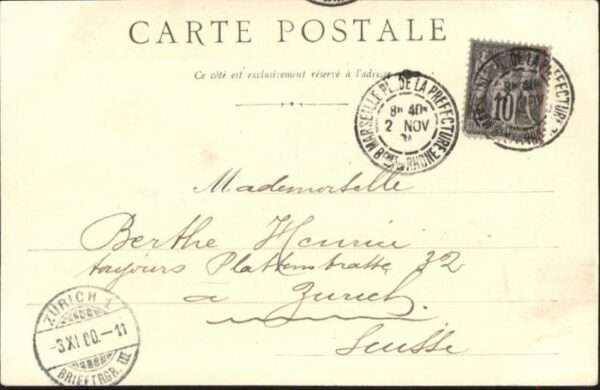 CARTE POSTALE
Ce côté est exclusivement réservé à l'adresse
MARSEILLE PL. DE LA PREFECTURE
8H 40M
2 NOV
BCHES DU RHONE
PL. DE LA PREFECTURE
8H 40
NOV
10
Mademoiselle
Berthe
toujours Plattenstrasse 32
à Zurich
Suisse
ZÜRICH 1
-3 XI 00.-11
BRIEFTRGR. III